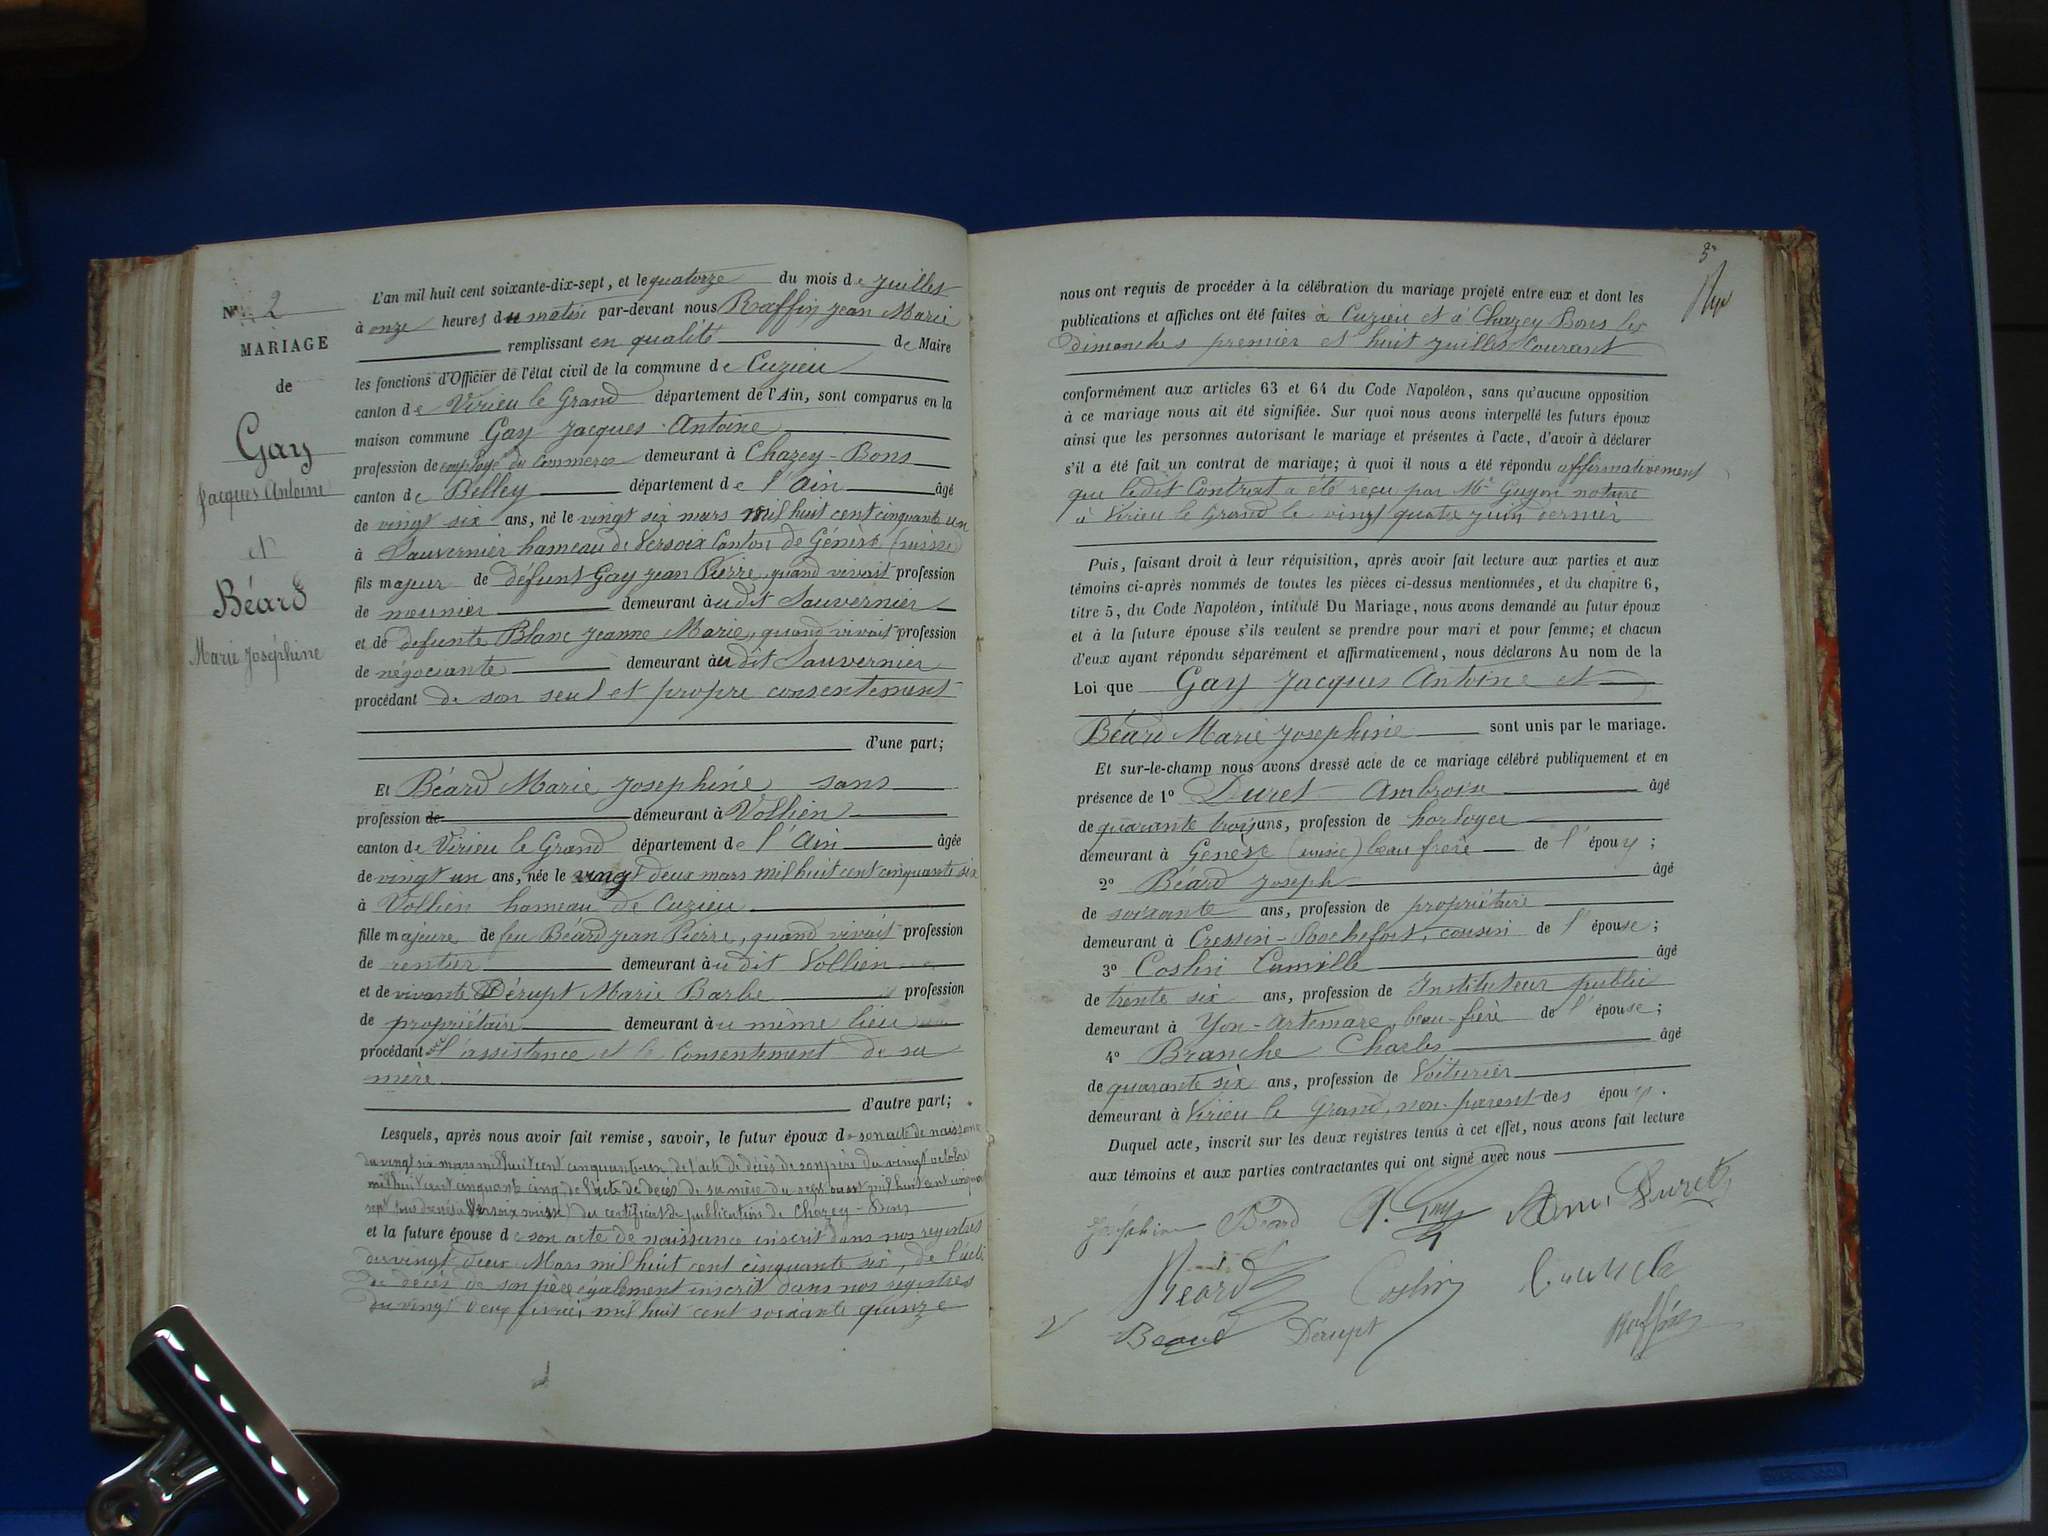 N° 2
MARIAGE
de
Gay
Jacques Antoine
et
Béard
Marie Joséphine
L'an mil huit cent soixante-dix-sept, et le quatorze du mois de juillet
à onze heures du matin par-devant nous Raffin Jean Marie
remplissant en qualité de Maire
les fonctions d'Officier de l'état civil de la commune de Cuzieu
canton de Virieu le Grand département de l'Ain, sont comparus en la
maison commune Gay Jacques Antoine
profession de employé du Commerce demeurant à Chazey-Bons
canton de Belley département de l'Ain âgé
de vingt six ans, né le vingt six mars mil huit cent cinquante un
à Sauvernier hameau de Versoix Canton de Génève (suisse)
fils majeur de défunt Gay Jean Pierre, quand vivait profession
de meunier demeurant audit Sauvernier
et de defunte Blanc Jeanne Marie, quand vivait profession
de négociante demeurant audit Sauvernier
procédant de son seul et propre consentement
d'une part;
Et Béard Marie Josephine sans
profession de demeurant à Vollien
canton de Virieu le Grand département de l'Ain âgée
de vingt un ans, née le vingt deux mars mil huit cent cinquante six
à Vollien hameau de Cuzieu
fille majeure de feu Béard Jean Pierre, quand vivait profession
de rentier demeurant audit Vollien
et de vivante Dérupt Marie Barbe profession
de propriétaire demeurant au même lieu
procédant l'assistance et le Consentement de sa
mère
d'autre part;
Lesquels, après nous avoir fait remise, savoir, le futur époux de son acte de naissance
du vingt six mars mil huit cent cinquante-un de l'acte de décès de son père du vingt octobre
mil huit cent cinquante cinq de l'acte de décès de sa mère du sept aout mil huit cent cinquante
sept tous Versoix suisse) du certificat de publication de Chazey-Bons
et la future épouse de son acte de naissance inscrit dans nos registres
du vingt deux Mars mil huit cent cinquante six, de l'acte
de décès de son père également inscrit dans nos registres
du vingt deux février mil huit cent soixante quinze
3
nous ont requis de procéder à la célébration du mariage projeté entre eux et dont les
publications et affiches ont été faites à Cuzieu et à Chazey Bons les
dimanches premier et huit juillet Courant
conformément aux articles 63 et 64 du Code Napoléon, sans qu'aucune opposition
à ce mariage nous ait été signifiée. Sur quoi nous avons interpellé les futurs époux
ainsi que les personnes autorisant le mariage et présentes à l'acte, d'avoir à déclarer
s'il a été fait un contrat de mariage; à quoi il nous a été répondu affirmativement
que ledit Contrat a été reçu par Me Guyon notaire
à Virieu le Grand le vingt quatre juin dernier
Puis, faisant droit à leur réquisition, après avoir fait lecture aux parties et aux
témoins ci-après nommés de toutes les pièces ci-dessus mentionnées, et du chapitre 6,
titre 5, du Code Napoléon, intitulé Du Mariage, nous avons demandé au futur époux
et à la future épouse s'ils veulent se prendre pour mari et pour femme; et chacun
d'eux ayant répondu séparément et affirmativement, nous déclarons Au nom de la
Loi que Gay Jacques Antoine et
Béard Marie Josephine sont unis par le mariage.
Et sur-le-champ nous avons dressé acte de ce mariage célébré publiquement et en
présence de 1° Duret Ambroise âgé
de quarante trois ans, profession de horloger
demeurant à Genève (suisse) beau frère de l'époux;
2° Béard Joseph âgé
de soixante ans, profession de propriétaire
demeurant à Cressin-Rochefort, cousin de l'épouse;
3° Coslin Camille âgé
de trente six ans, profession de Instituteur public
demeurant à Yon-Artemare, beau-frère de l'épouse;
4° Branche Charles âgé
de quarante six ans, profession de Voiturier
demeurant à Virieu le Grand, non-parent des époux.
Duquel acte, inscrit sur les deux registres tenus à cet effet, nous avons fait lecture
aux témoins et aux parties contractantes qui ont signé avec nous
Joséphine Béard A. Gay Duret
Béard Coslin
Béard Dérupt Raffin